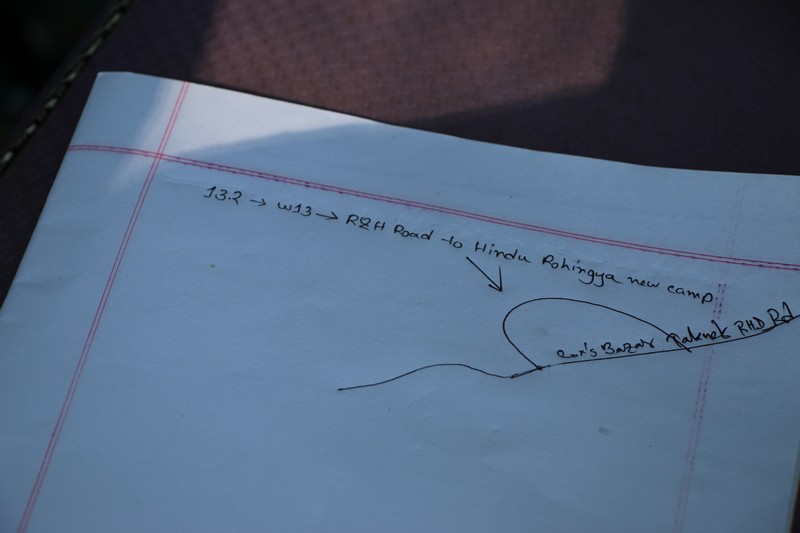 13.2 → W13 → R&H Road to Hindu Rohingya new camp
Cox's Bazar RHD Rd